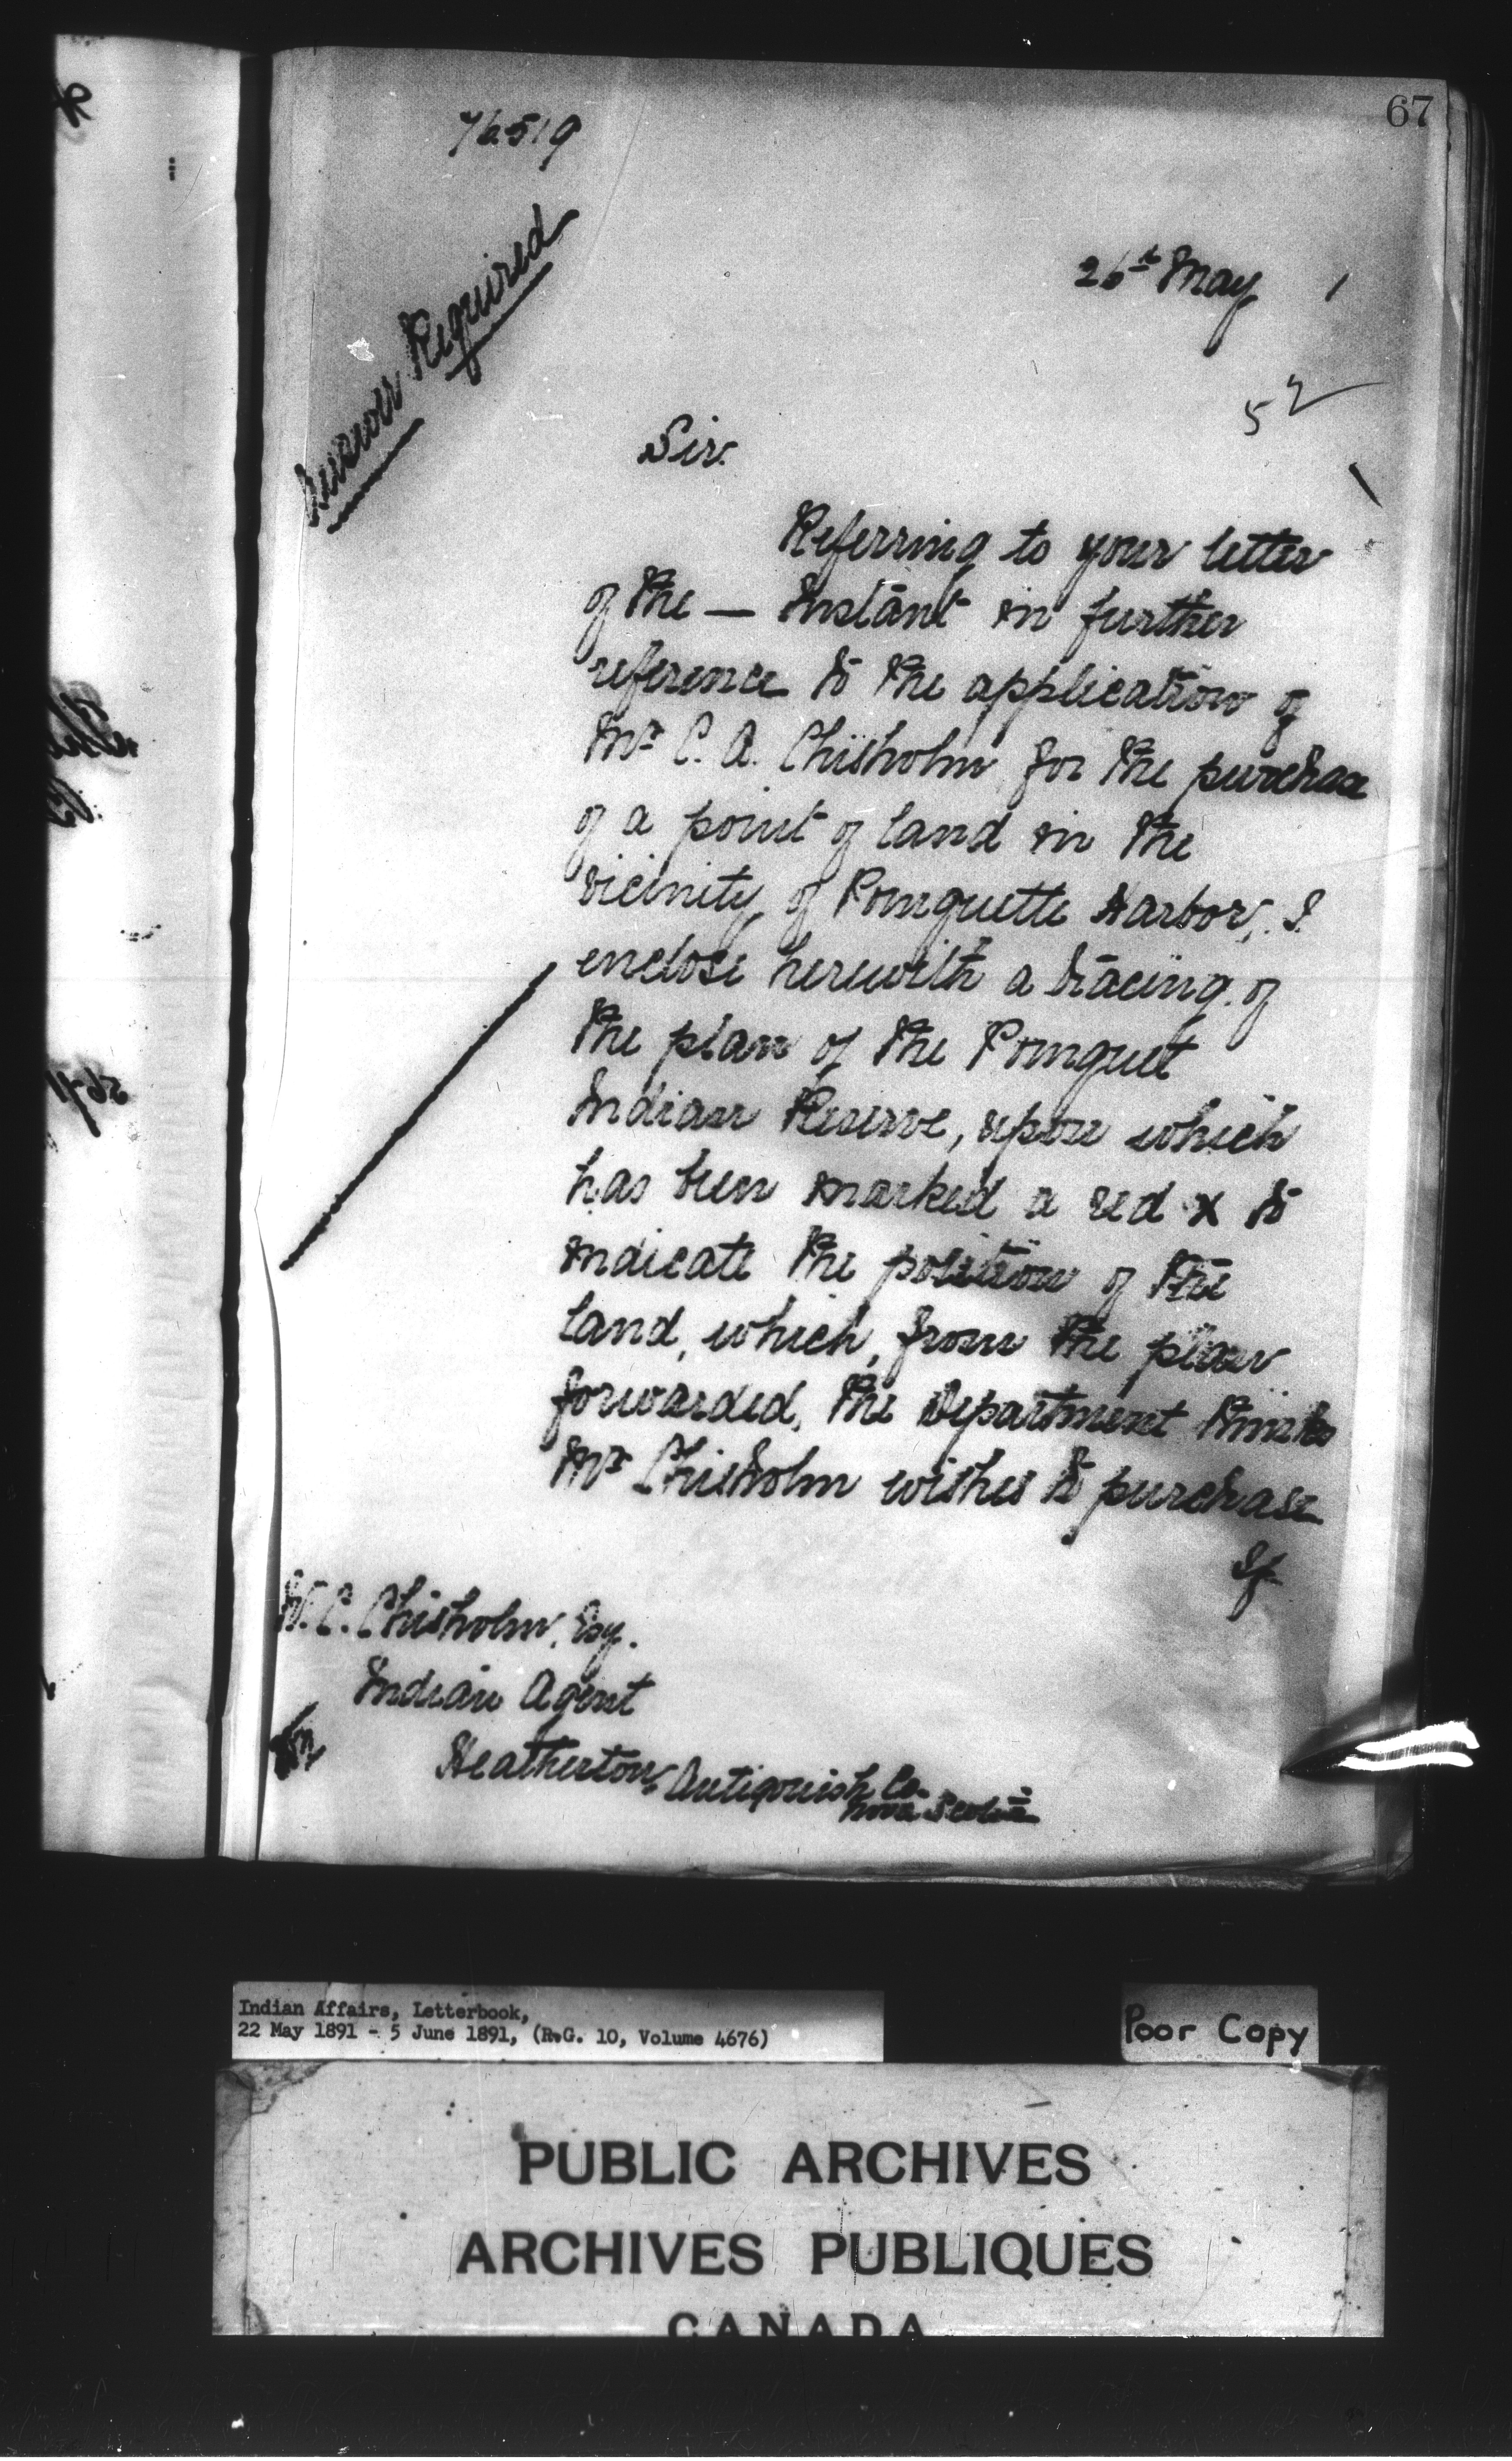 67
76519
Answer Required
26th May 1
52
Sir.
Referring to your letter
of the — Instant in further
reference to the application of
Mr C. A. Chisholm for the purchase
of a point of land in the
vicinity of Pomquette Harbor, I
enclose herewith a tracing of
the plan of the Pomquet
Indian Reserve, upon which
has been marked a red x to
indicate the position of the
land, which, from the plan
forwarded, the Department thinks
Mr Chisholm wishes to purchase
If
W. C. Chisholm, Esq.
Indian Agent
Heatherton, Antigonish Co.
Nova Scotia
Indian Affairs, Letterbook,
22 May 1891 - 5 June 1891, (R.G. 10, Volume 4676)
Poor Copy
PUBLIC ARCHIVES
ARCHIVES PUBLIQUES
CANADA